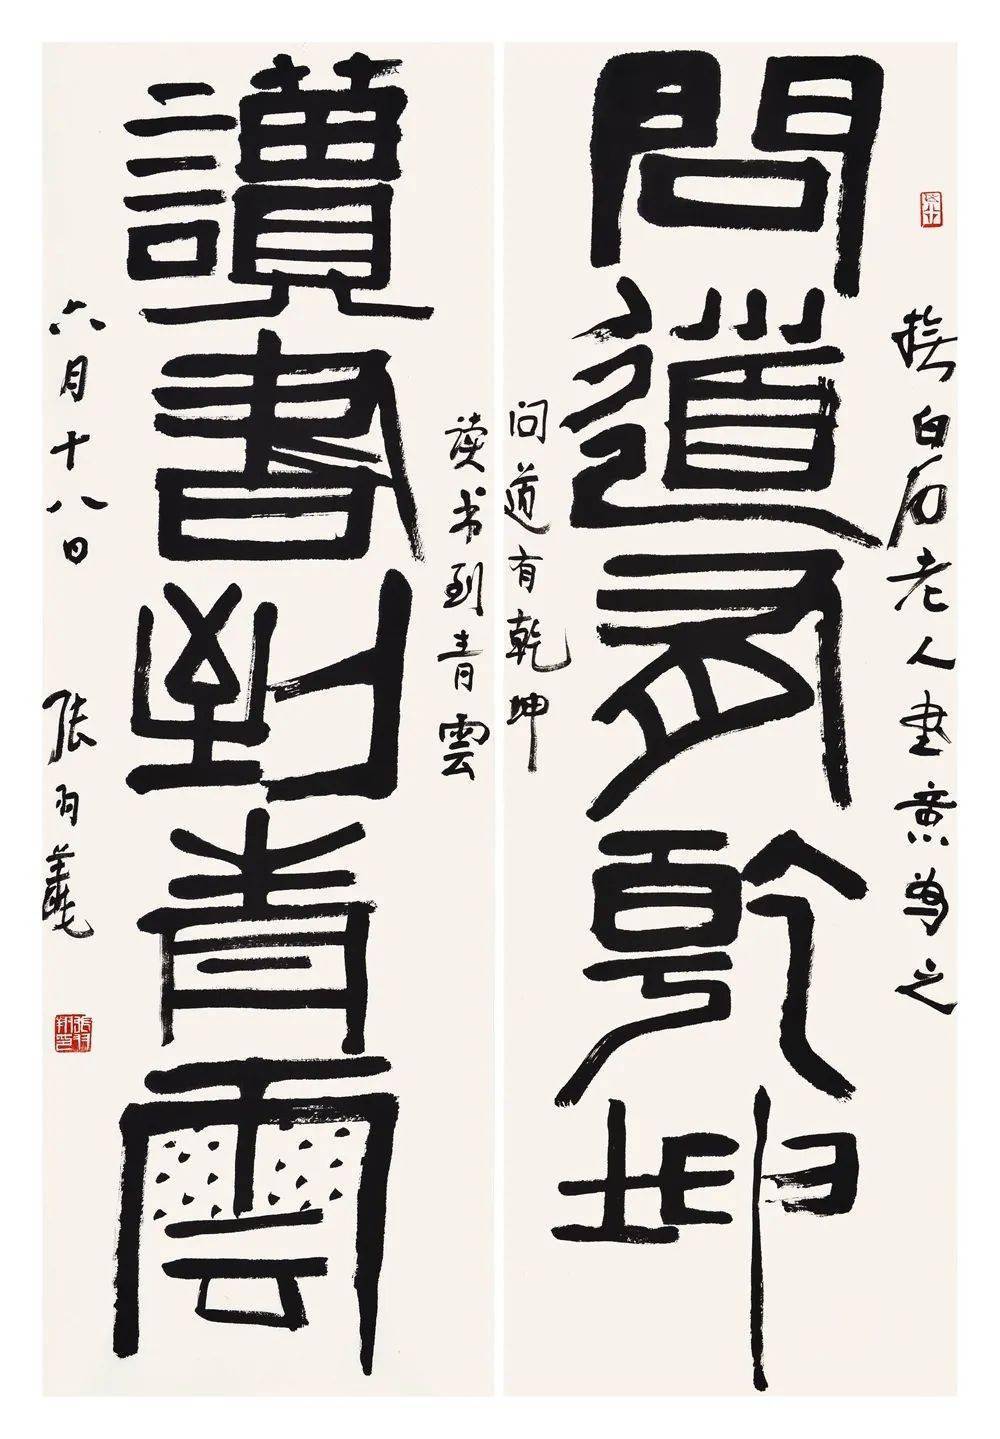 白石老人書意之
問道有乾坤
问道有乾坤
读书到青雲
讀書到青雲
六月十八日 张羽翔
張羽翔印